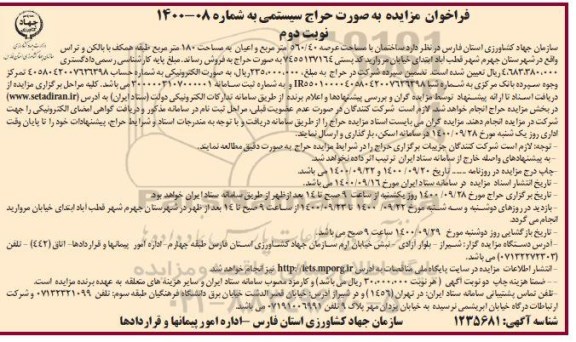 فراخوان مزایده به صورت حراج سیستمی به شماره ۰۸-۱۴۰۰
نوبت دوم
سازمان جهاد کشاورزی استان فارس در نظر دارد ساختمان با مساحت عرصه ۵۶۰/۴۰ متر مربع و اعیان به مساحت ۱۸۰ متر مربع طبقه همکف با بالکن و تراس
واقع در شهرستان جهرم شهر قطب آباد ابتدای خیابان مروارید کد پستی ۷۴۵۵۱۳۷۱۶۴ به صورت حراج به فروش رساند. مبلغ پایه کارشناسی رسمی دادگستری
۴،۶۸۳،۳۸۰،۰۰۰ ریال تعیین شده است. تضمین سپرده شرکت در حراج به مبلغ ۲۳۵،۰۰۰،۰۰۰ ریال، به صورت الکترونیکی به شماره حساب
وجه سپرده بانک مرکزی به شماره شبا و به شماره ثبت سامانه می باشد. کلیه مراحل برگزاری مزایده از
دریافت اسناد تا ارائه پیشنهاد توسط مزایده گران و بررسی پیشنهادها و اعلام برنده از طریق سامانه تدارکات الکترونیکی دولت (ستاد ایران) به آدرس (www.setadiran.ir)
در بخش مزایده حراج انجام خواهد شد. لازم است شرکت کنندگان در صورت عدم عضویت قبلی، مراحل ثبت نام در سامانه مذکور و دریافت گواهی امضای الکترونیکی را جهت
شرکت در مزایده انجام دهند. مزایده گران می بایست اسناد مزایده حراج را از طریق سامانه دریافت و با توجه به مندرجات اسناد و شرایط حراج، پیشنهادات خود را تا پایان وقت
اداری روز یک شنبه مورخ ۱۴۰۰/۰۹/۲۸ در سامانه اسکن، بارگذاری و ارسال نمایند.
- توجه: لازم است شرکت کنندگان جزییات برگزاری حراج را در شرایط مزایده حراج به صورت دقیق مطالعه نمایند.
- به پیشنهادهای واصله خارج از سامانه ستاد ایران ترتیب اثر داده نخواهد شد.
- چاپ درج مزایده در روزنامه تاریخ ۱۴۰۰/۰۹/۲۰ و ۱۴۰۰/۰۹/۲۲ می باشد.
- تاریخ انتشار اسناد مزایده در سامانه ستاد ایران مورخ ۱۴۰۰/۰۹/۱۶ می باشد.
- تاریخ برگزاری حراج مورخ ۱۴۰۰/۰۹/۲۸ روز یکشنبه از ساعت ۹ صبح تا ۱۴ بعد از ظهر از طریق سامانه ستاد ایران خواهد بود.
- بازدید در روزهای دوشنبه و سه شنبه مورخ ۱۴۰۰/۰۹/۲۲ تا ۱۴۰۰/۰۹/۲۳ از ساعت ۹ صبح تا ۱۴ بعد از ظهر در شهرستان جهرم شهر قطب آباد ابتدای خیابان مروارید
انجام می گردد.
- تاریخ بازگشایی روز دوشنبه مورخ ۱۴۰۰/۰۹/۲۹ ساعت ۹ صبح می باشد.
- آدرس دستگاه مزایده گزار: شیراز - بلوار آزادی - نبش خیابان ارم سازمان جهاد کشاورزی استان فارس طبقه چهارم - اداره امور پیمانها و قراردادها - اتاق (۴۴۲) - تلفن
(۰۷۱۳۲۲۷۲۳۰۳) می باشد.
- انتشار اطلاعات مزایده در سایت پایگاه ملی مناقصات به آدرس http://iets.mporg.ir نیز انجام خواهد شد.
- ضمنا هزینه چاپ دو نوبت آگهی (هر نوبت ۳۰،۰۰۰،۰۰۰ ریال می باشد) و کارمزد مصوب سامانه ستاد ایران و سایر هزینه های متعلقه به عهده برنده مزایده است.
- تلفن تماس پشتیبانی سامانه ستاد ایران: در تهران (۱۴۵۶) و در شیراز آدرس: خیابان قصردشت خیابان برق دانشگاه فرهنگیان طبقه سوم: تلفن ۰۷۱۳۲۳۲۱۰۹۹ و شرکت
ارتباطات درگاه خیابان ابریشمی نرسیده به خیابان یزدان مهر پلاک ۹ تلفن ۰۷۱۹۱۰۰۶۹۹۱ می باشد.
شناسه آگهی: ۱۲۳۵۶۸۱ سازمان جهاد کشاورزی استان فارس - اداره امور پیمانها و قراردادها